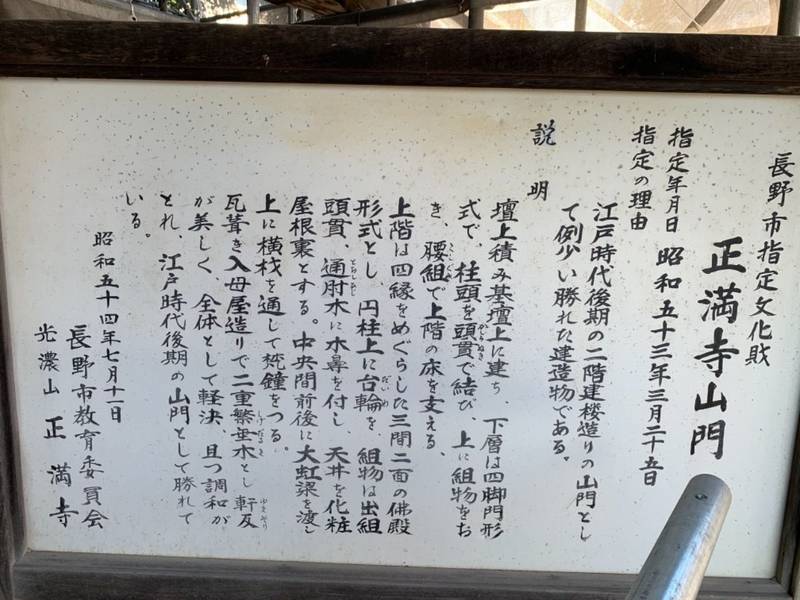 長野市指定文化財
正満寺山門
指定年月日　昭和五十三年三月二十五日
指定の理由
江戸時代後期の二階建楼造りの山門とし
て例少い勝れた建造物である。
説明
壇上積み基壇上に建ち、下層は四脚門形
式で、柱頭を頭貫で結び、上に組物をお
き、腰組で上階の床を支える。
上階は四縁をめぐらした三間二面の佛殿
形式とし、円柱上に台輪を、組物は出組
頭貫、通肘木に木鼻を付し、天井を化粧
屋根裏とする。中央間前後に大虹梁を渡し
上に横材を通して梵鐘をつる。
瓦葺き入母屋造りで二重繁垂木とし軒反
が美しく、全体として軽決、且つ調和が
とれ、江戸時代後期の山門として勝れて
いる。
昭和五十四年七月十一日
長野市教育委員会
光濃山　正満寺